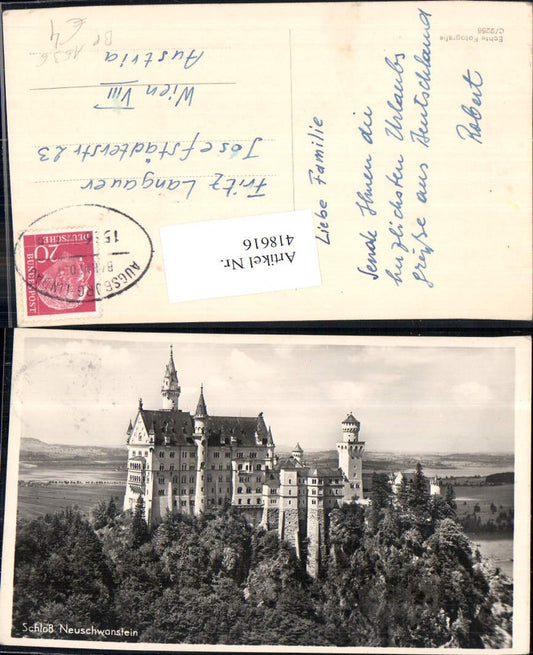 Echte Fotografie
C/9256
Liebe Familie
Sende Ihnen die
herzlichsten Urlaubs
grüße aus Deutschland
Robert
Fritz Langauer
Josefstädterstr 23
Wien VIII
Austria
Artikel Nr.
418616
20
DEUTSCHE
BUNDESPOST
AUGSBURG
Schloß Neuschwanstein